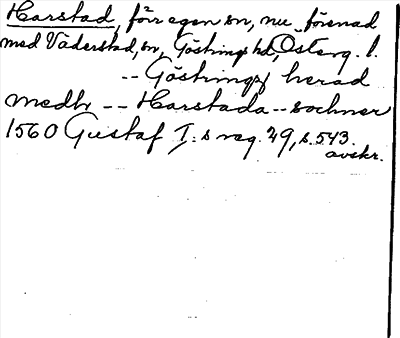 Harstad, förr egen sn, nu förenad
med Väderstad, sn, Göstrings hd, Österg. l.
-- Göstrings herad
medh -- Harstada -- sochner
1560 Gustaf I:s reg. 29, s. 543.
avskr.